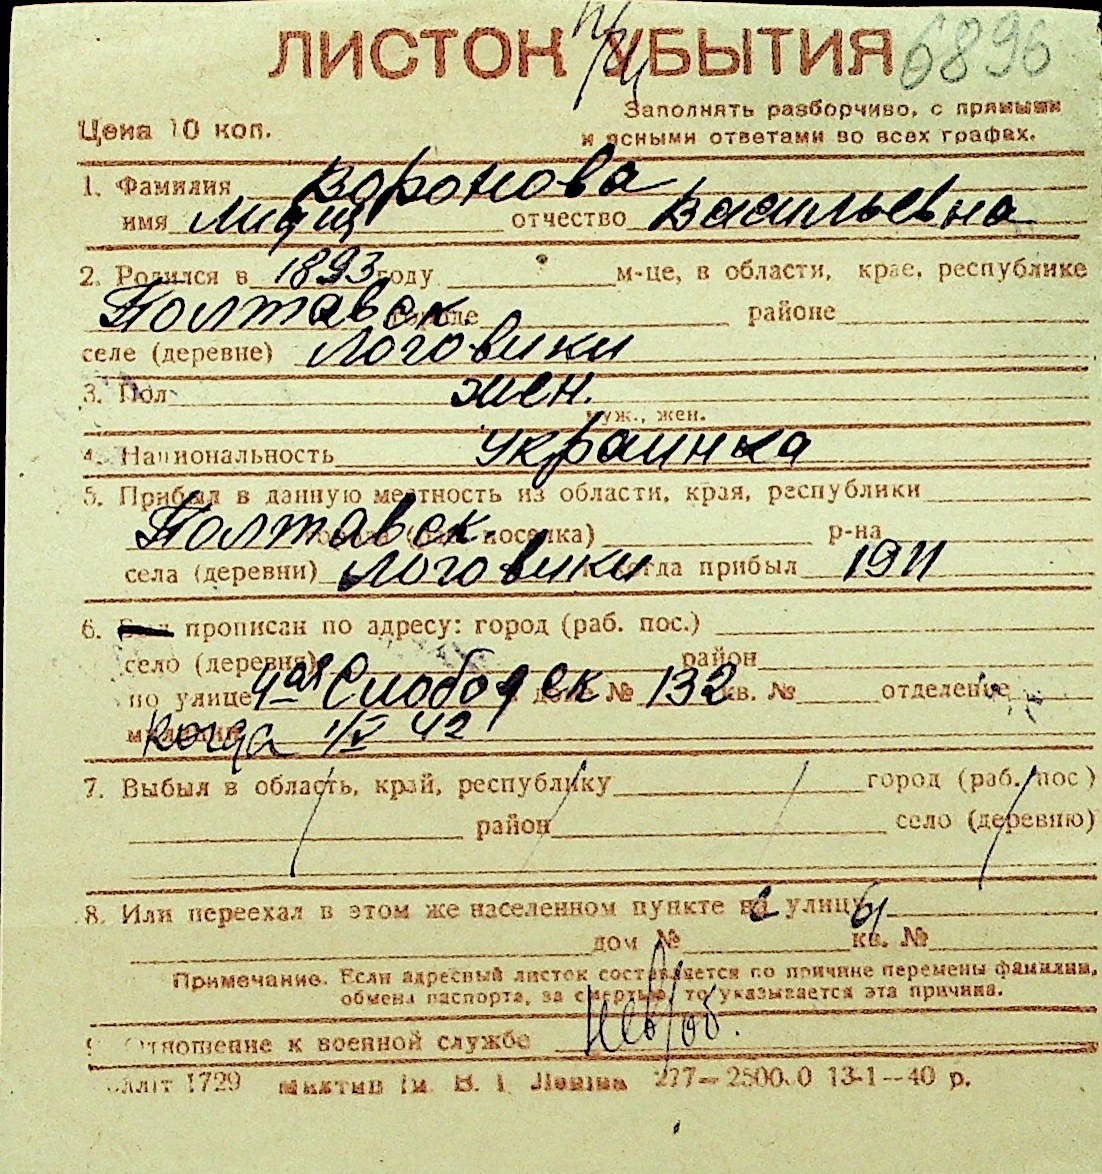 ЛИСТОК УБЫТИЯ 6896
Цена 10 коп.
Заполнять разборчиво, с прямыми
и ясными ответами во всех графах.
1. Фамилия Воронова
имя отчество Васильевна
2. Родился в 1893 году м-це, в области, крае, республике
Полтавск. городе районе
селе (деревне) Логовики
3. Пол жен.
муж., жен.
4. Национальность украинка
5. Прибыл в данную местность из области, края, республики
Полтавск. города (раб. поселка) р-на
села (деревни) Логовики когда прибыл 1911
6. прописан по адресу: город (раб. пос.)
село (деревня) район
по улице 4ая Слободск дом № 132 кв. № отделение
милиции когда 1/V 42
7. Выбыл в область, край, республику город (раб. пос)
район село (деревню)
8. Или переехал в этом же населенном пункте на улицу
дом № кв. №
Примечание. Если адресный листок составляется по причине перемены фамилии,
обмена паспорта, за смертью, то указывается эта причина.
9. Отношение к военной службе невооб.
1729 им. В. І. Леніна 277—2500.0 13-1—40 р.